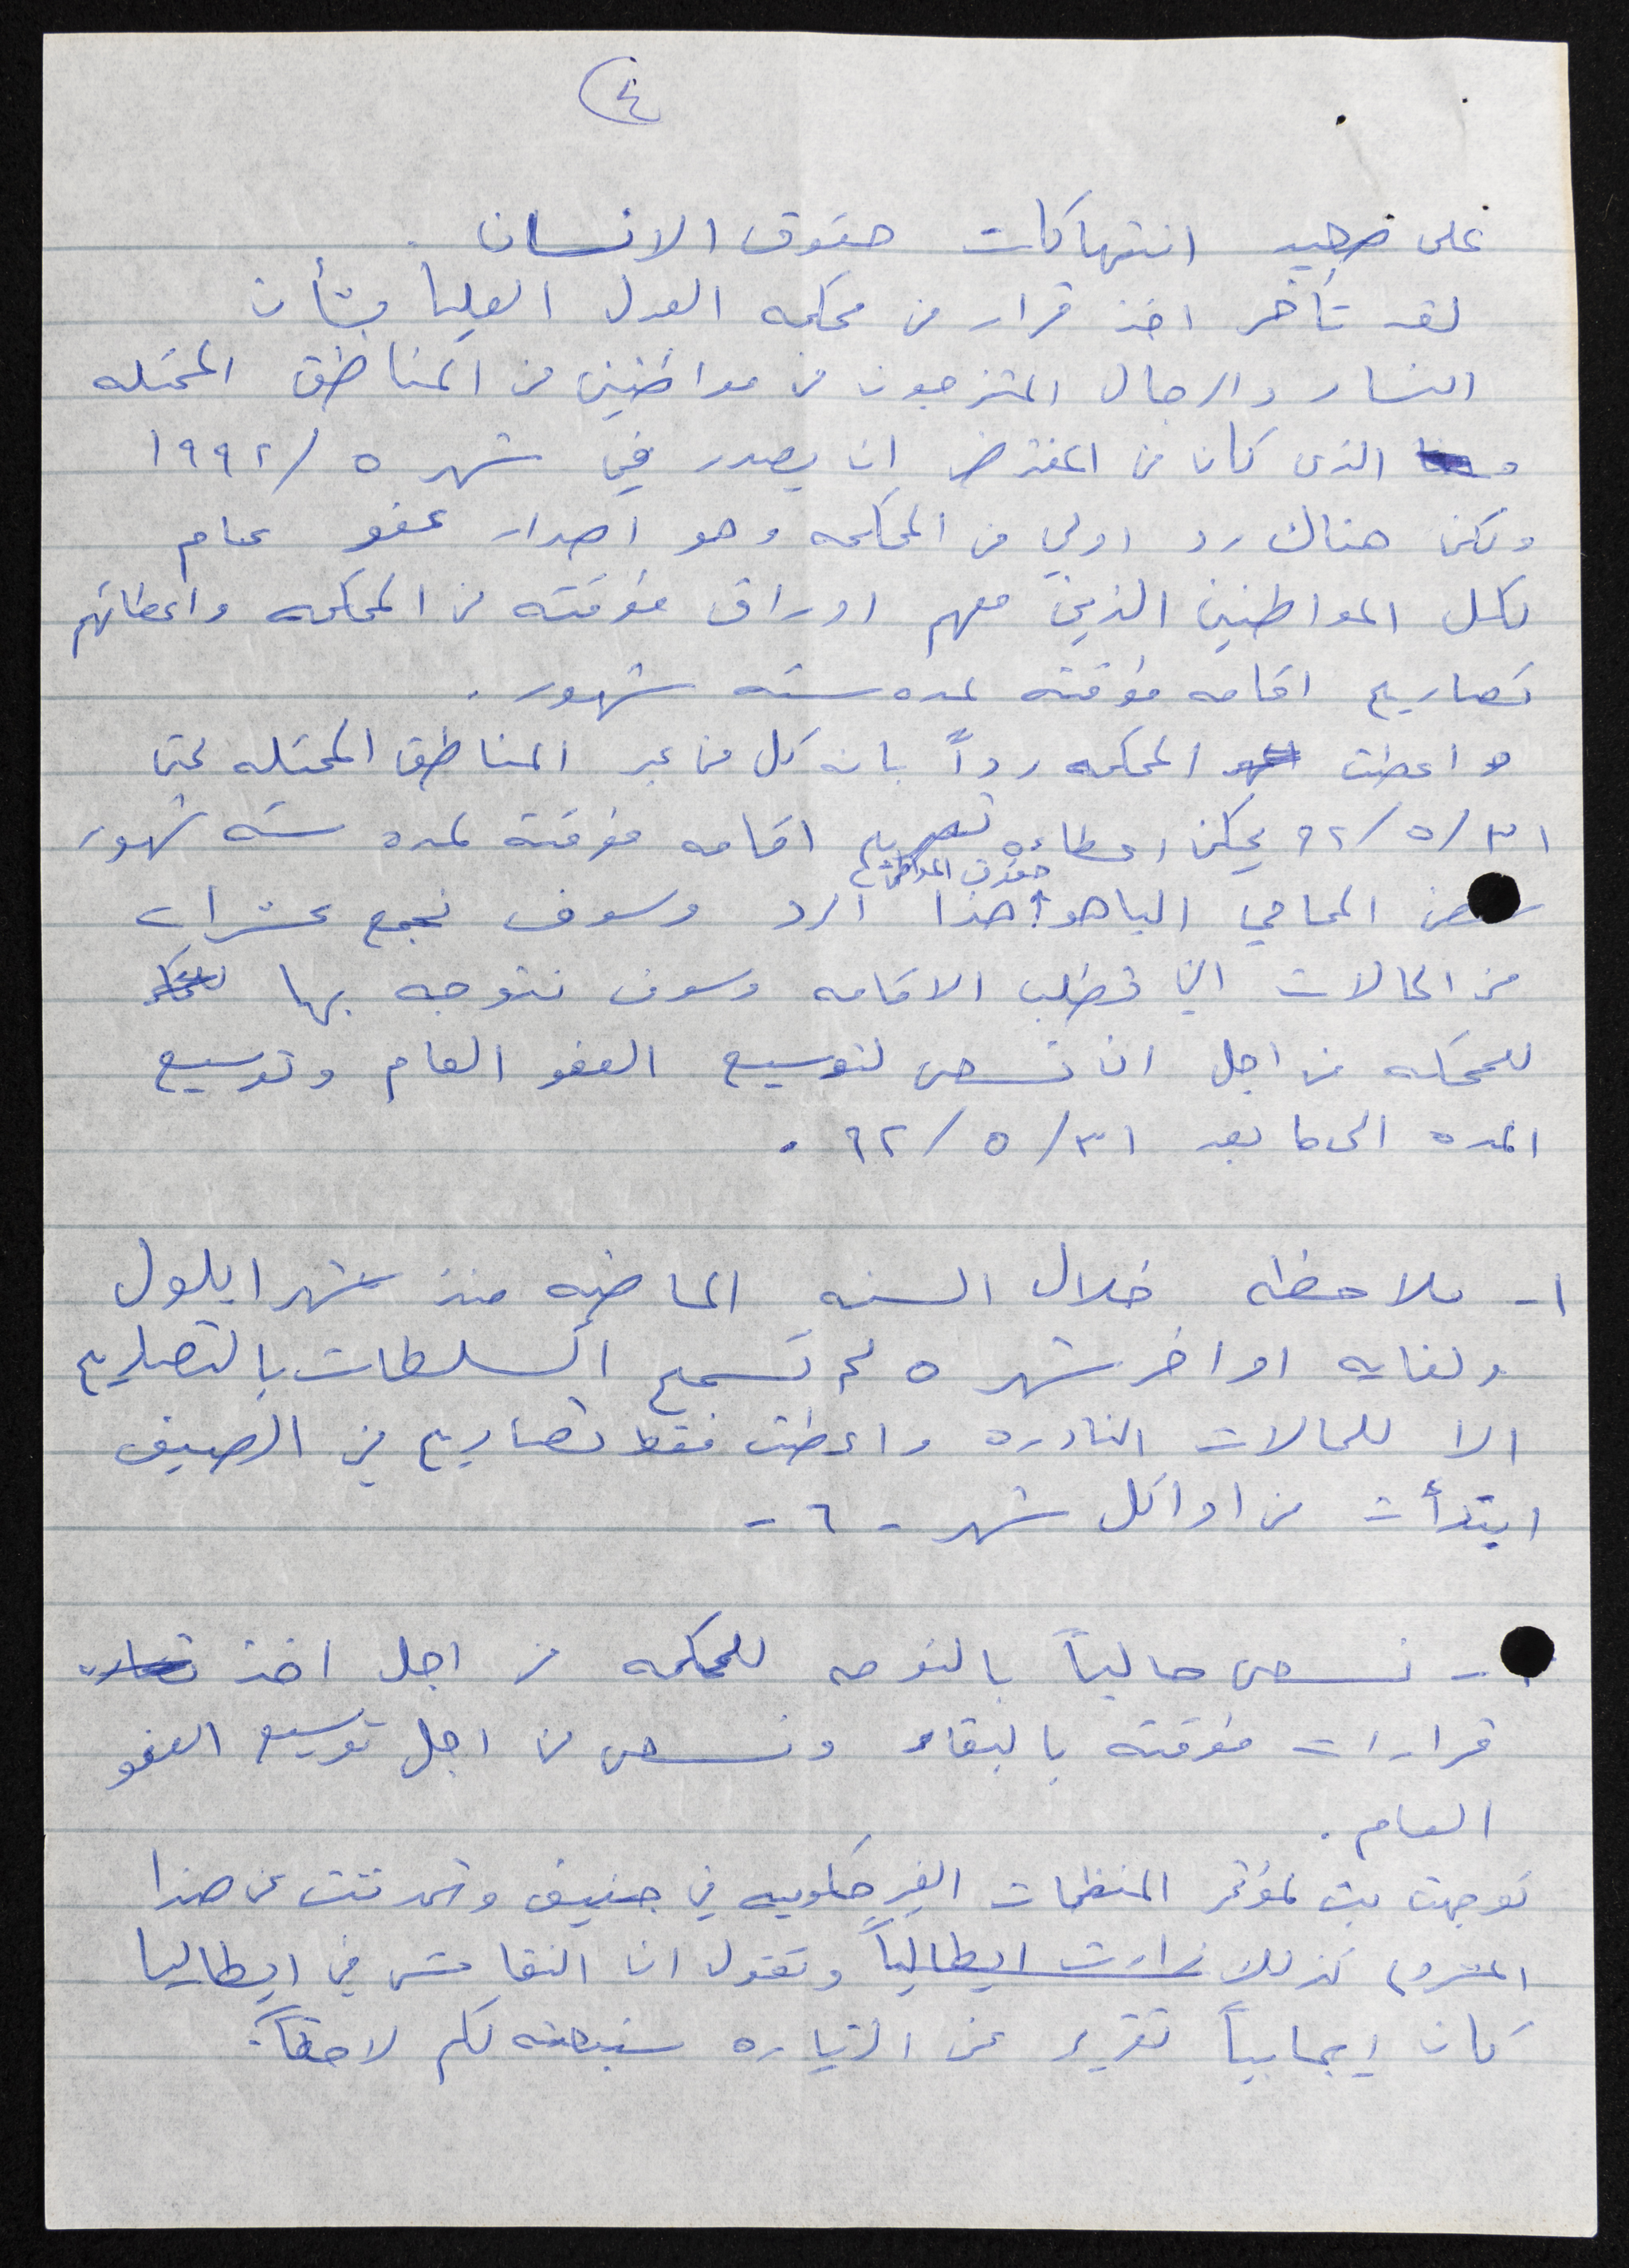 ٤
على صعيد انتهاكات حقوق الانسان .
لقد تأخر اخذ قرار من محكمه العدل العليا بشأن
النساء والرجال المتزوجون من مواطنين من المناطق المحتله
و الذى كان من المفترض ان يصدر في شهر ٥ / ١٩٩٢
ولكن هناك رد اولي من المحكمه وهو اصدار عفو عام
لكل المواطنين الذين معهم اوراق مؤقته من المحكمه واعطائهم
تصاريح اقامه مؤقته لمده سته شهور .
و اعطت المحكمه رداً بانه كل من عبر المناطق المحتله حتى
٣١ / ٥ / ٩٢ يمكن اعطاءه تصريح اقامه مؤقته لمده سته شهور
حقوق المواطن
المحامي الياهو هذا الرد وسوف نجمع عشرات
من الحالات التي تطلب الاقامه وسوف نتوجه بها
للمحكمه من اجل ان نسعى لتوسيع العفو العام وتوسيع
المده الى ما بعد ٣١ / ٥ / ٩٢ .
١- ملاحظه خلال السنه الماضيه منذ شهر ايلول
ولغايه اواخر شهر ٥ لم تسمح السلطات بالتصاريح
الا للحالات النادره واعطت فقط تصاريح في الصيف
ابتدأت من اوائل شهر - ٦ -
- نسعى حالياً بالتوجه للمحكمه من اجل اخذ
قرارات مؤقته بالبقاء ونسعى من اجل توسيع العفو
العام .
توجهت بت لمؤتمر المنظمات الغير حكوميه في جنيف وتحدثت عن هذا
المشروع كذلك زارت ايطالياً وتقول ان النقاش في ايطاليا
كان ايجابياً تقرير عن الزياره سنبعثه لكم لاحقاً .